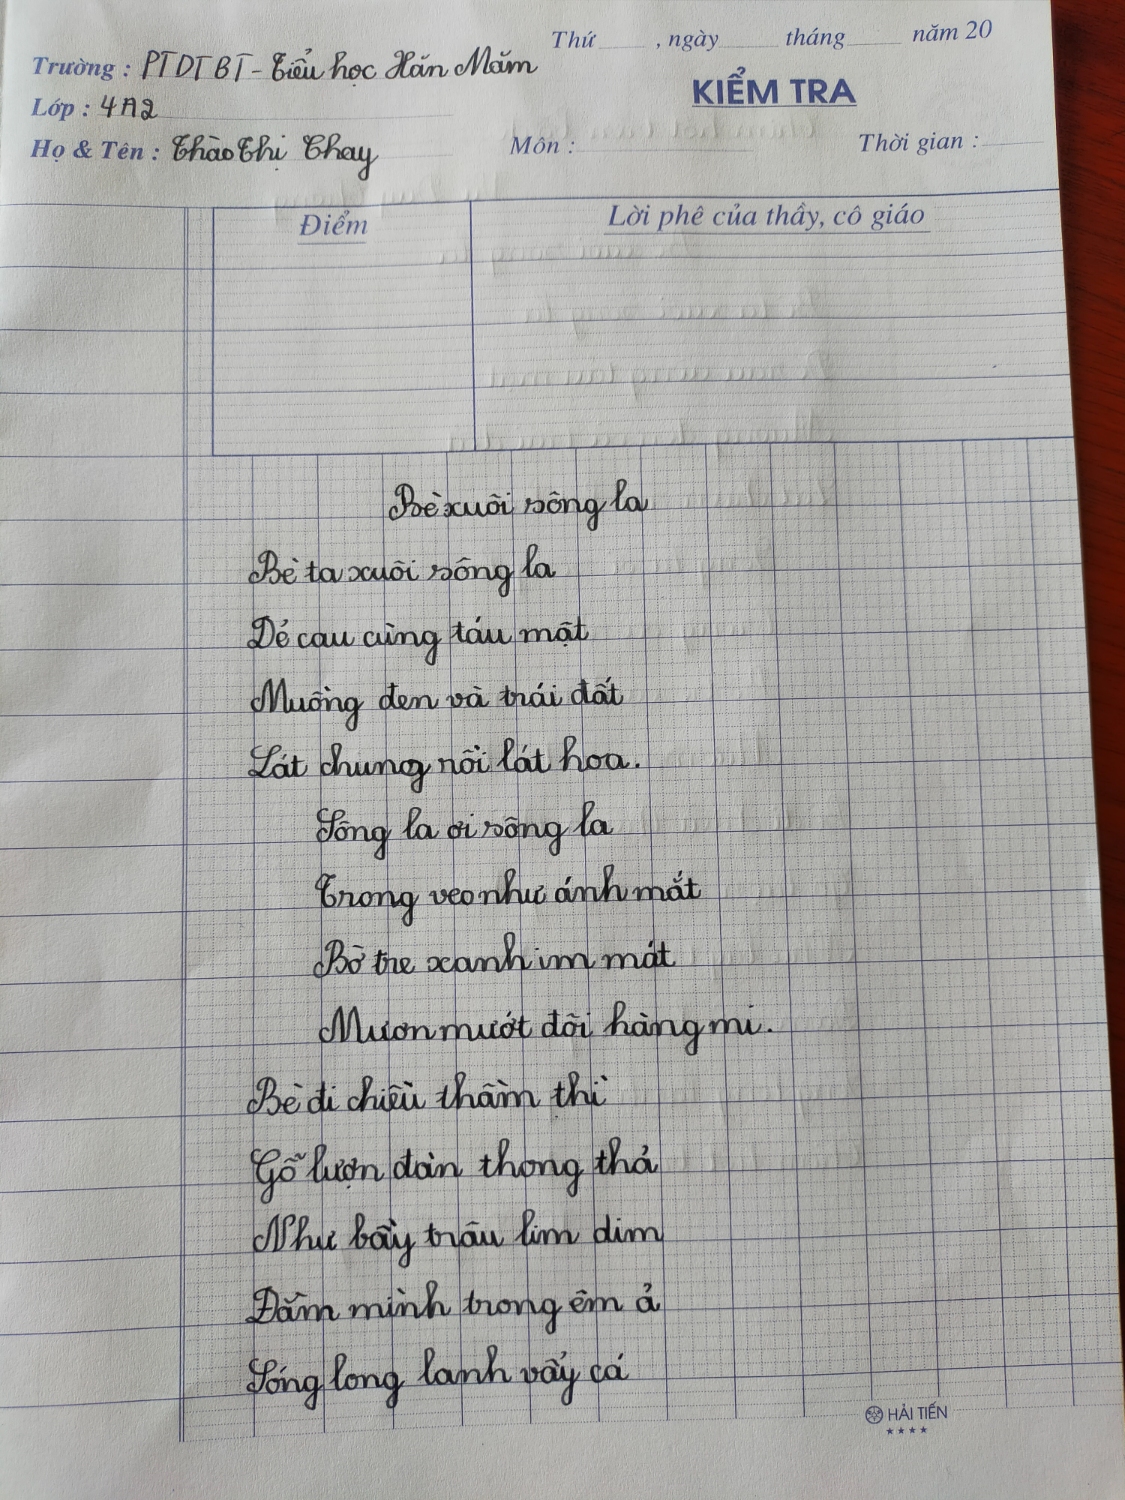 Thứ , ngày tháng năm 20
Trường : PTDTBT - Tiểu học Hăn Măm
KIỂM TRA
Lớp : 4A2
Họ & Tên : Thào Thị Chay
Môn : Thời gian :
Điểm
Lời phê của thầy, cô giáo
Bè xuôi sông la
Bè ta xuôi sông la
Dẻ cau cùng táu mật
Muồng đen và trái đất
Lát chung nồi lát hoa.
Sông la ơi sông la
Trong veo như ánh mắt
Bờ tre xanh im mát
Mươn mướt đôi hàng mi.
Bè đi chiều thầm thì
Gỗ lượn đàn thong thả
Như bầy trâu lim dim
Đằm mình trong êm ả
Sóng long lanh vẩy cá
HẢI TIẾN